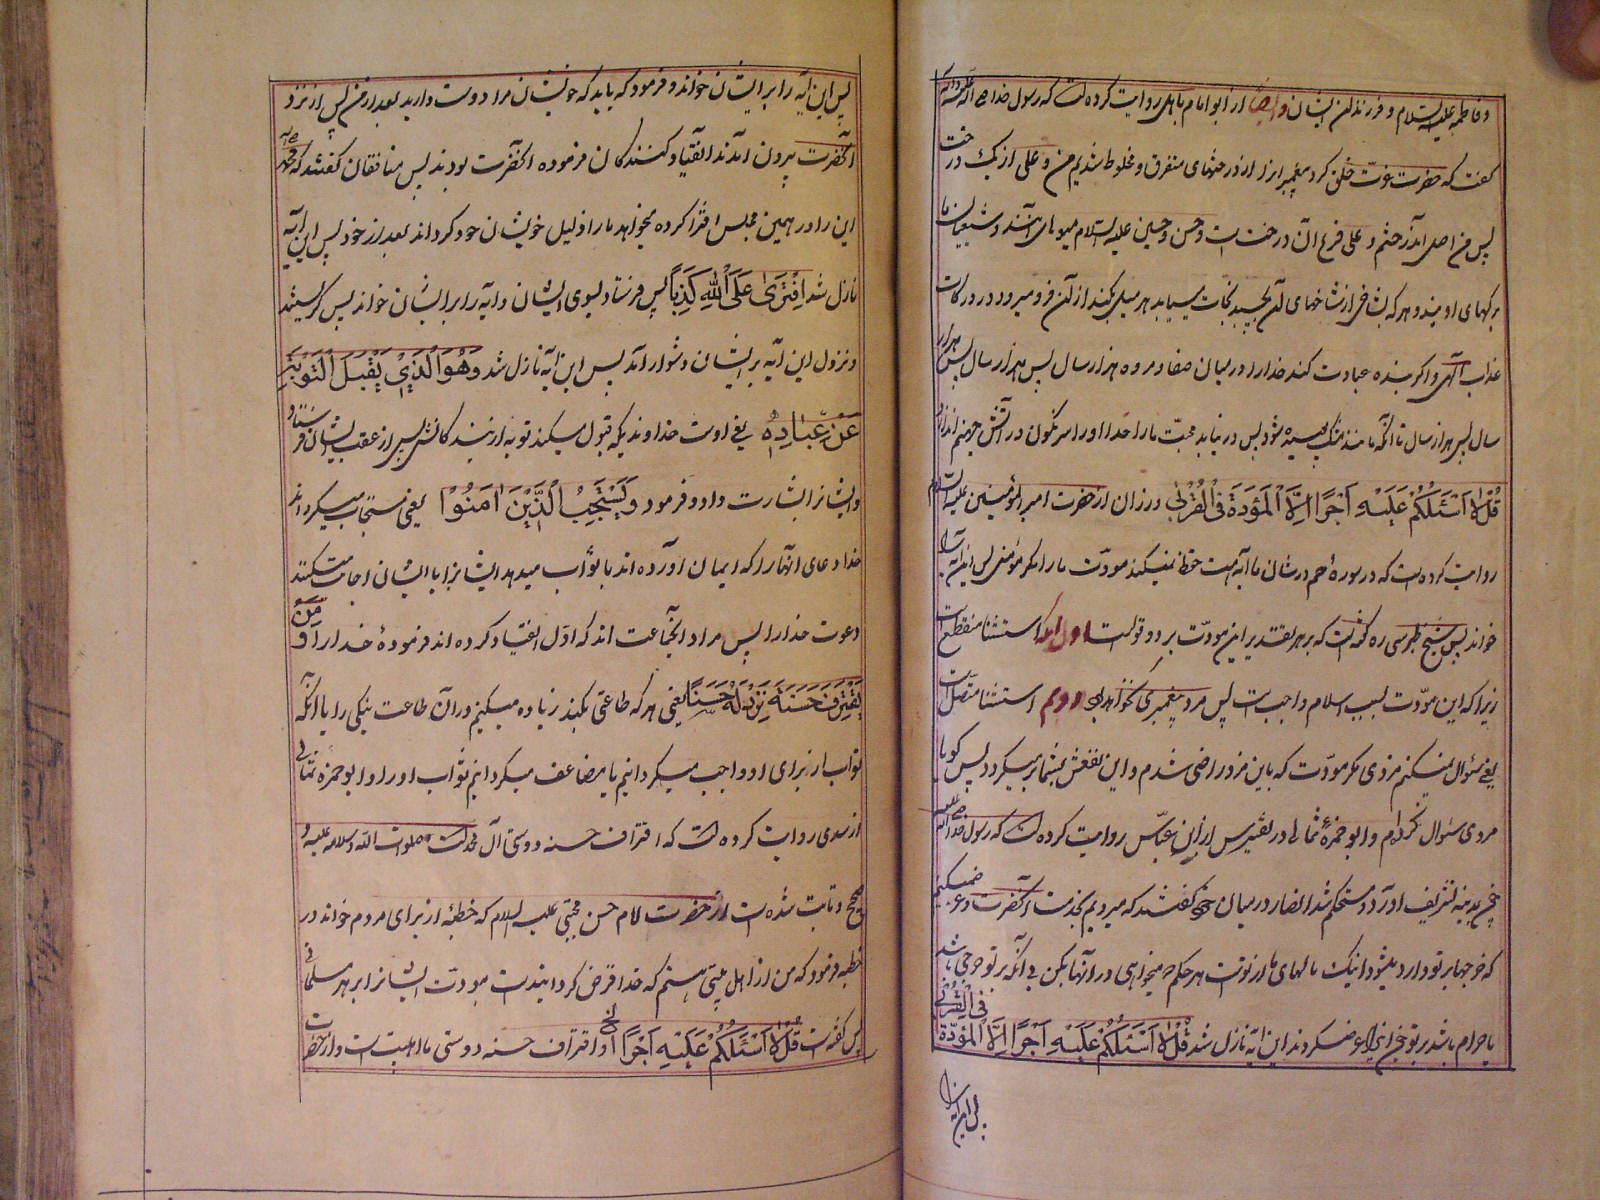 و فاطمه علیه السلام و فرزندان ایشان و ایضا از ابو امام باهلی روایت کرده است که رسول خدا صلی الله علیه و آله
گفت که حضرت عزت خلق کرد پیغمبرانرا از درختهای متفرق و مخلوط شدیم من و علی از یک درخت
پس من اصل آندرختم و علی فرع آن درخت است و حسن و حسین علیه السلام میوه های آنند و شیعیان ما
برکهای اویند و هر که بشاخی از شاخهای آن بچسبد نجات مییابد هر میل بکند از آن فرو میرود در درکات
عذاب آلهی و اکر بنده عبادت کند خدا را در میان صفا و مروه هزار سال پس هزار سال پس هزار
سال پس هزار سال تا آنکه مانند مشک پوسیده شود پس در نیابد محبت ما را خدا او را سرنکون در آتش جهنم اندازد
قُلْ لا اَسْئَلُكُمْ عَلَيْهِ اَجْرًا اِلَّا الْمَوَدَّةَ فِي الْقُرْبٰى و زاذان از حضرت امیر المؤمنین علیه السلام
روایت کرده است که در سوره حم در شان ما آیه هست حفظ نمیکند مودت ما را مکر مؤمنی پس این آیه را
خواند پس شیخ طبرسی ره کفته است که بر هر تقدیر این مودت بر دو قولست اول آنکه استثنا منقطع است
زیرا که این مودت بسبب اسلام واجب است پس مرد پیغمبری نخواهد بود دویم استثنا متصل است
یعنی سئوال نمیکنم مزدی مکر مودت که باین مزد راضی شدم و این نفعش بشما بر میکردد پس کویا
مزدی سئوال نکرده‌ام و ابو حمزه ثمالی در تفسیرش از ابن عباس روایت کرده است که رسول خدا صلی الله علیه
چون بمدینه تشریف آورد و مستحکم شد انصار در میان خود کفتند که میرویم بخدمت آنحضرت و عرض میکنیم
که خرجها بر تو وارد میشود اینک مالهای ما از تو است هر حکم میخواهی در آنها بکن بی آنکه بر تو حرجی باشد
یا حرام باشد بر تو چون اینرا عرض کردند این آیه نازل شد قُلْ لا اَسْئَلُكُمْ عَلَيْهِ اَجْرًا اِلَّا الْمَوَدَّةَ فِي الْقُرْبٰى
پس این آیه را
پس این آیه را بر ایشان خواند و فرمود که باید که خویشان مرا دوست دارید بعد از من پس از نزد
آنحضرت بیرون آمدند انقیاد کنندکان فرموده آنحضرت بودند پس منافقان کفتند که محمد ص
این را در همین مجلس افترا کرده میخواهد ما را ذلیل خویشان خود کرداند بعد از خود پس این آیه
نازل شد اِفْتَرٰى عَلَى اللّٰهِ كَذِبًا پس فرستاد بسوی ایشان و آیه را بر ایشان خواند پس کریستند
و نزول این آیه بر ایشان دشوار آمد پس این آیه نازل شد وَهُوَ الَّذِيْ يَقْبَلُ التَّوْبَةَ
عَنْ عِبَادِهٖ یعنی اوست خداوندیکه قبول میکند توبه از بندکانش پس از عقب ایشان فرستاد
و ایشانرا بشارت داد و فرمود وَيَسْتَجِيْبُ الَّذِيْنَ اٰمَنُوْا یعنی مستجاب میکرداند
خدا دعای آنها را که ایمان آورده اند یا ثواب میدهد ایشانرا یا ایشان اجابت میکنند
دعوت خدا را پس مراد آنجماعت اند که اول انقیاد کرده اند فرموده خدا را وَمَنْ
يَقْتَرِفْ حَسَنَةً نَزِدْ لَهٗ حَسَنًا یعنی هر که طاعتی بکند زیاده میکنیم در آن طاعت نیکی را یا آنکه
ثواب از برای او واجب میکردانیم یا مضاعف میکردانیم ثواب او را و ابو حمزه ثمالی
از سدی روایت کرده است که اقتراف حسنه دوستی آل محمد است صلوات الله و سلامه علیه و
صحیح و ثابت شده است از حضرت امام حسن مجتبی علیه السلام که خطبه از برای مردم خواند در
خطبه فرمود که من از اهل بیتی هستم که خدا فرض کردانیدست مودت ایشانرا بر هر مسلمانی
پس کفته است قُلْ لا اَسْئَلُكُمْ عَلَيْهِ اَجْرًا الخ و اقتراف حسنه دوستی ما اهلبیت است و از حضرت